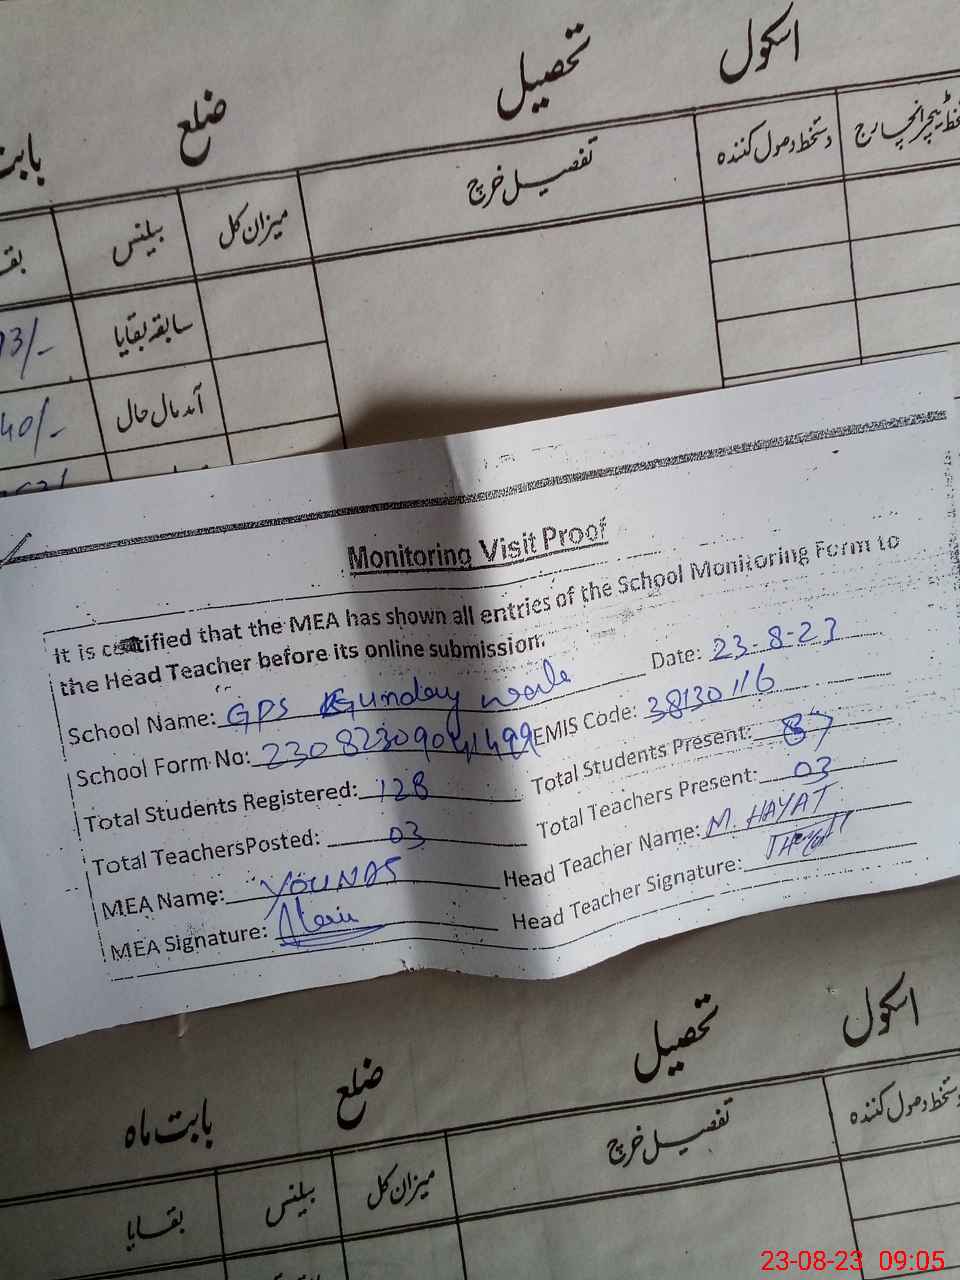 اسکول تحصیل ضلع
دستخط وصول کننده تفصیل خرچ میزان کل بیلنس
سابقہ بقایا
آمد مال حال
40/-
Monitoring Visit Proof
It is certified that the MEA has shown all entries of the School Monitoring Form to
the Head Teacher before its online submission.
School Name: GPS Gunday Date: 23-8-23
School Form No: EMIS Code: 38130116
Total Students Registered: 128 Total Students Present: 87
Total TeachersPosted: 03 Total Teachers Present: 03
MEA Name: YOUNAS Head Teacher Name: M. HAYAT
MEA Signature: Head Teacher Signature:
اسکول تحصیل ضلع بابت ماہ
دستخط وصول کننده تفصیل خرچ میزان کل بیلنس بقایا
23-08-23 09:05